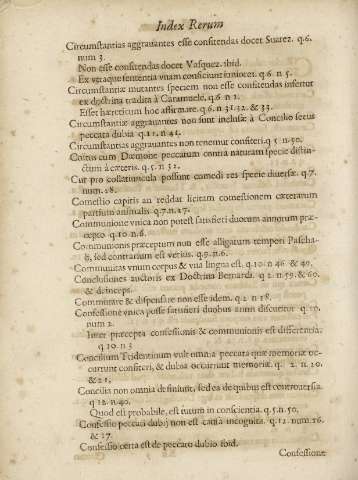 Index Rerum
Circumstantias aggravantes esse confitendas docet Suarez. q.6.
num 3.
Non esse confitendas docet Vasquez. ibid.
Ex utraque sententia unam conficiunt iuniores. q.6 n 5.
Circumstantiæ mutantes speciem non esse confitendas infertur
ex doctrina tradita à Caramuele. q.6 n 2.
Esset hæreticum hoc affirmare. q.6 n.31.32. & 33.
Circumstantiæ aggravantes non sunt inclusæ à Concilio secus
peccata dubia q.12. n 41.
Circumstantiæ aggravantes non tenemur confiteri. q 5 n 50.
Coitus cum Dæmone peccatum contra naturam specie distin-
ctum à cæteris. q.5. n 32.
Cur pro collatiuncula possunt comedi res specie diversæ. q.7.
num.28.
Comestio capitis an reddat licitam comestionem cæterarum
partium animalis q.7.n.27.
Communione unica non potest satisfieri duorum annorum præ-
cepto q.10. n.6.
Communionis præceptum non esse alligatum tempori Pascha-
li, sed contrarium est verius. q.9. n.6.
Communitas unum corpus & una lingua est. q.10. n 46 & 49.
Conclusiones auctoris ex Doctrina Bernardi. q 2. n.59. & 60.
& deinceps.
Commutare & dispensare non esse idem. q 2 n 18.
Confessione unica posse satisfieri duobus annis discutitur q 10.
num 2.
Inter præcepta confessionis & communionis est differentia.
q 10. n 3
Concilium Tridentinum vult omnia peccata quæ memoriæ oc-
currunt confiteri, & dubia occurrunt memoriæ. q. 2. n. 20.
& 21.
Concilia non omnia definiunt, sed ea de quibus est controversia.
q 12. n 40.
Quod est probabile, est tutum in conscientia. q.5. n.50.
Confessio peccati dubij non est causa incognita. q.12 num.16.
& 17
Confessio certa est de peccato dubio ibid.
Confessione